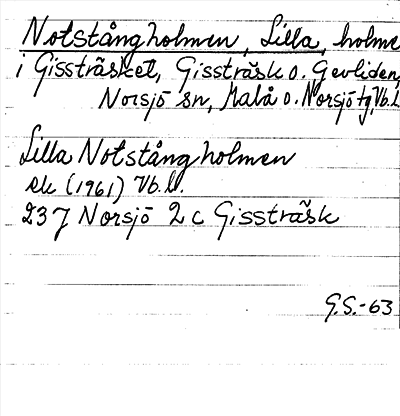 Notstångholmen, Lilla, holme
i Gissträsket, Gissträsk o. Gevliden,
Norsjö sn, Malå o. Norsjö tg, Vb.l.
Lilla Notstångholmen
ek (1961) Vb.l.
23J Norsjö 2c Gissträsk
G.S.-63